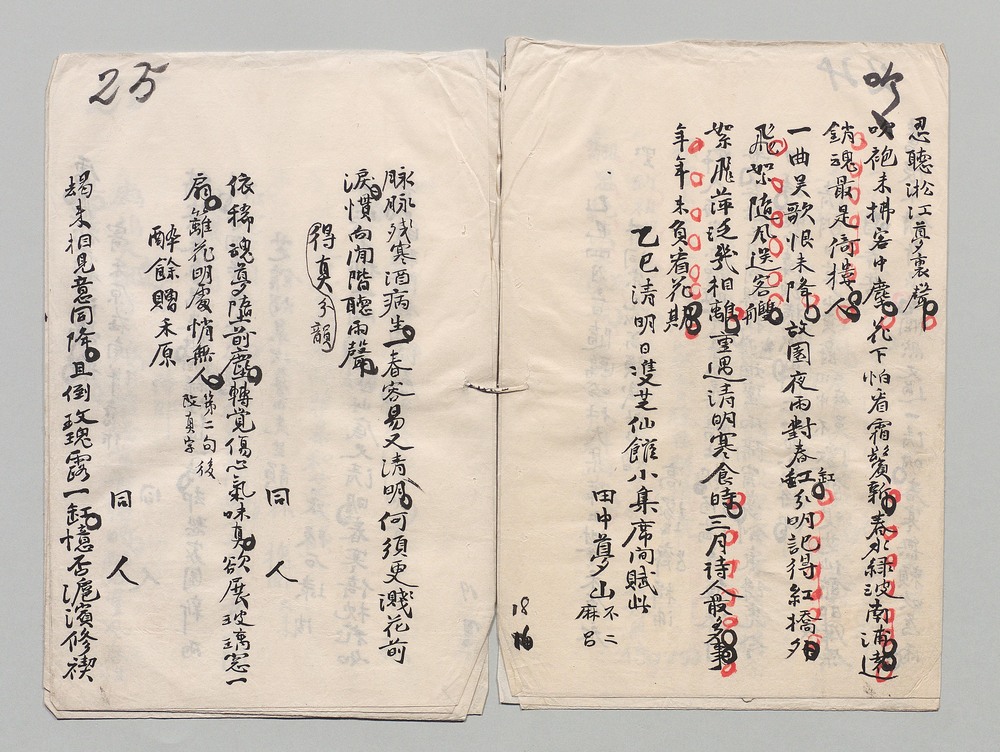 吟
忍聽淞江夢裏聲
吹袍未拂客中塵花下怕看霜鬢新春水綠波南浦遠
銷魂最是倚樓人
一曲吳歌恨未降故園夜雨對春缸分明記得紅橋夕
缸
飛絮隨風送客艭
絮飛萍泛幾相離重遇清明寒食時三月待人最多事
年年未負看花期
乙巳清明日雙芝仙館小集席間賦此
田中夢山不二麻呂
18
25
脉脉殘寒酒病生一春容易又清明何須更濺花前
淚慣向閒階聽雨聲
得真分韻
同人
依稀魂夢墮前塵轉覺傷心氣味真欲展玻璃窓一
扇離花明處悄無人
第二句後改真字
醉餘贈未原
同人
曷未相見意同降且倒玫瑰露一缸憶否滬濱修禊